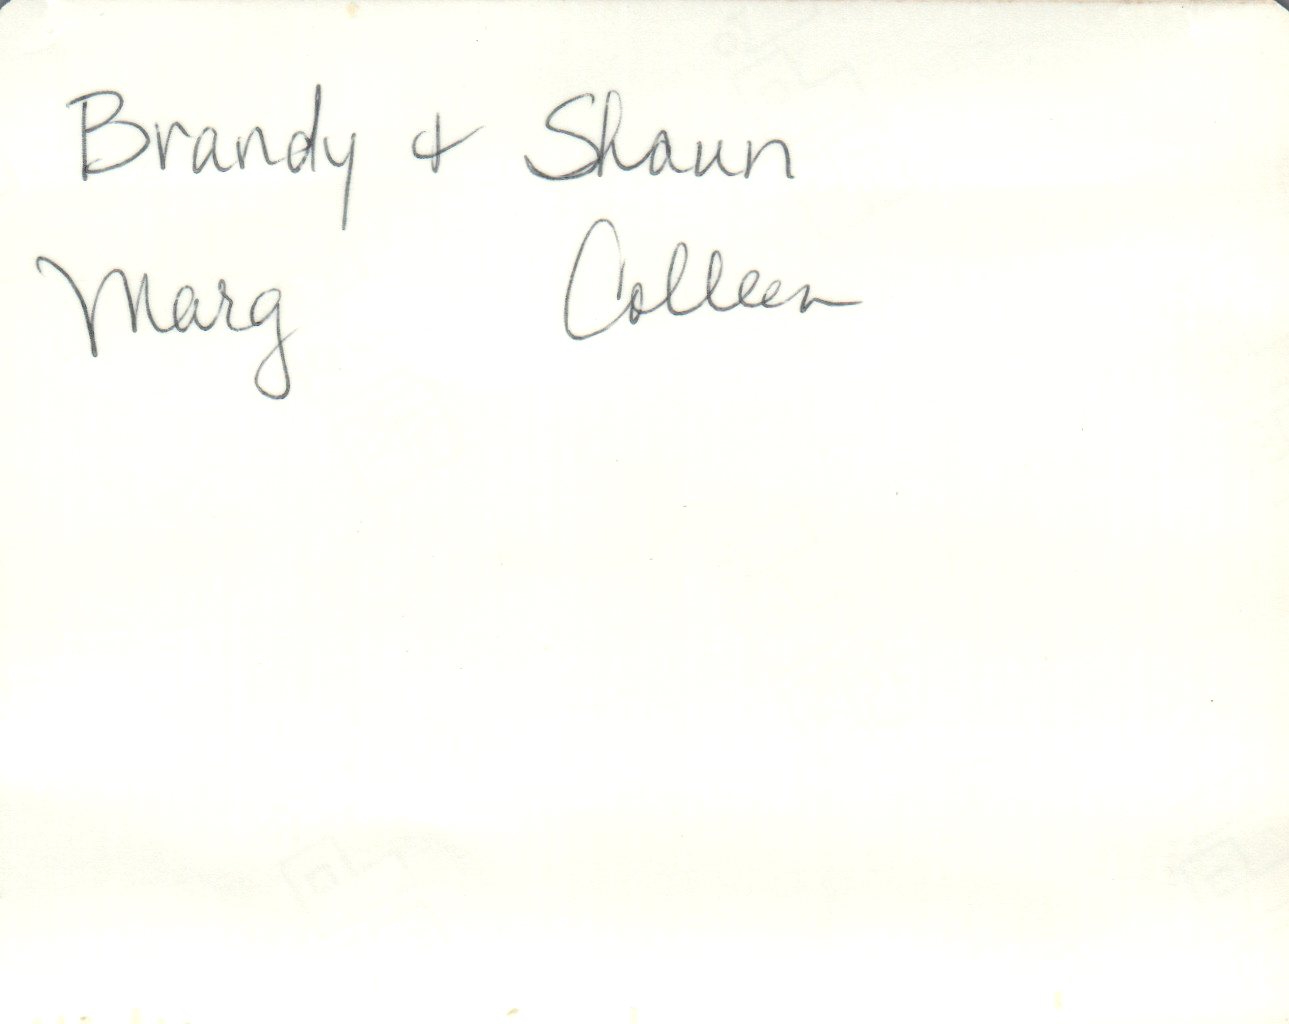 Brandy & Shaun
Marg Colleen